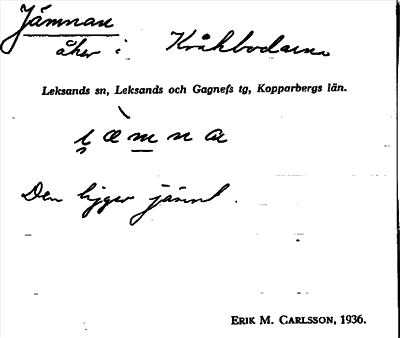 Jämnan
åker i Kråkbodarna
Leksands sn, Leksands och Gagnefs tg, Kopparbergs län.
Den ligger jämnt.
ERIK M. CARLSSON, 1936.